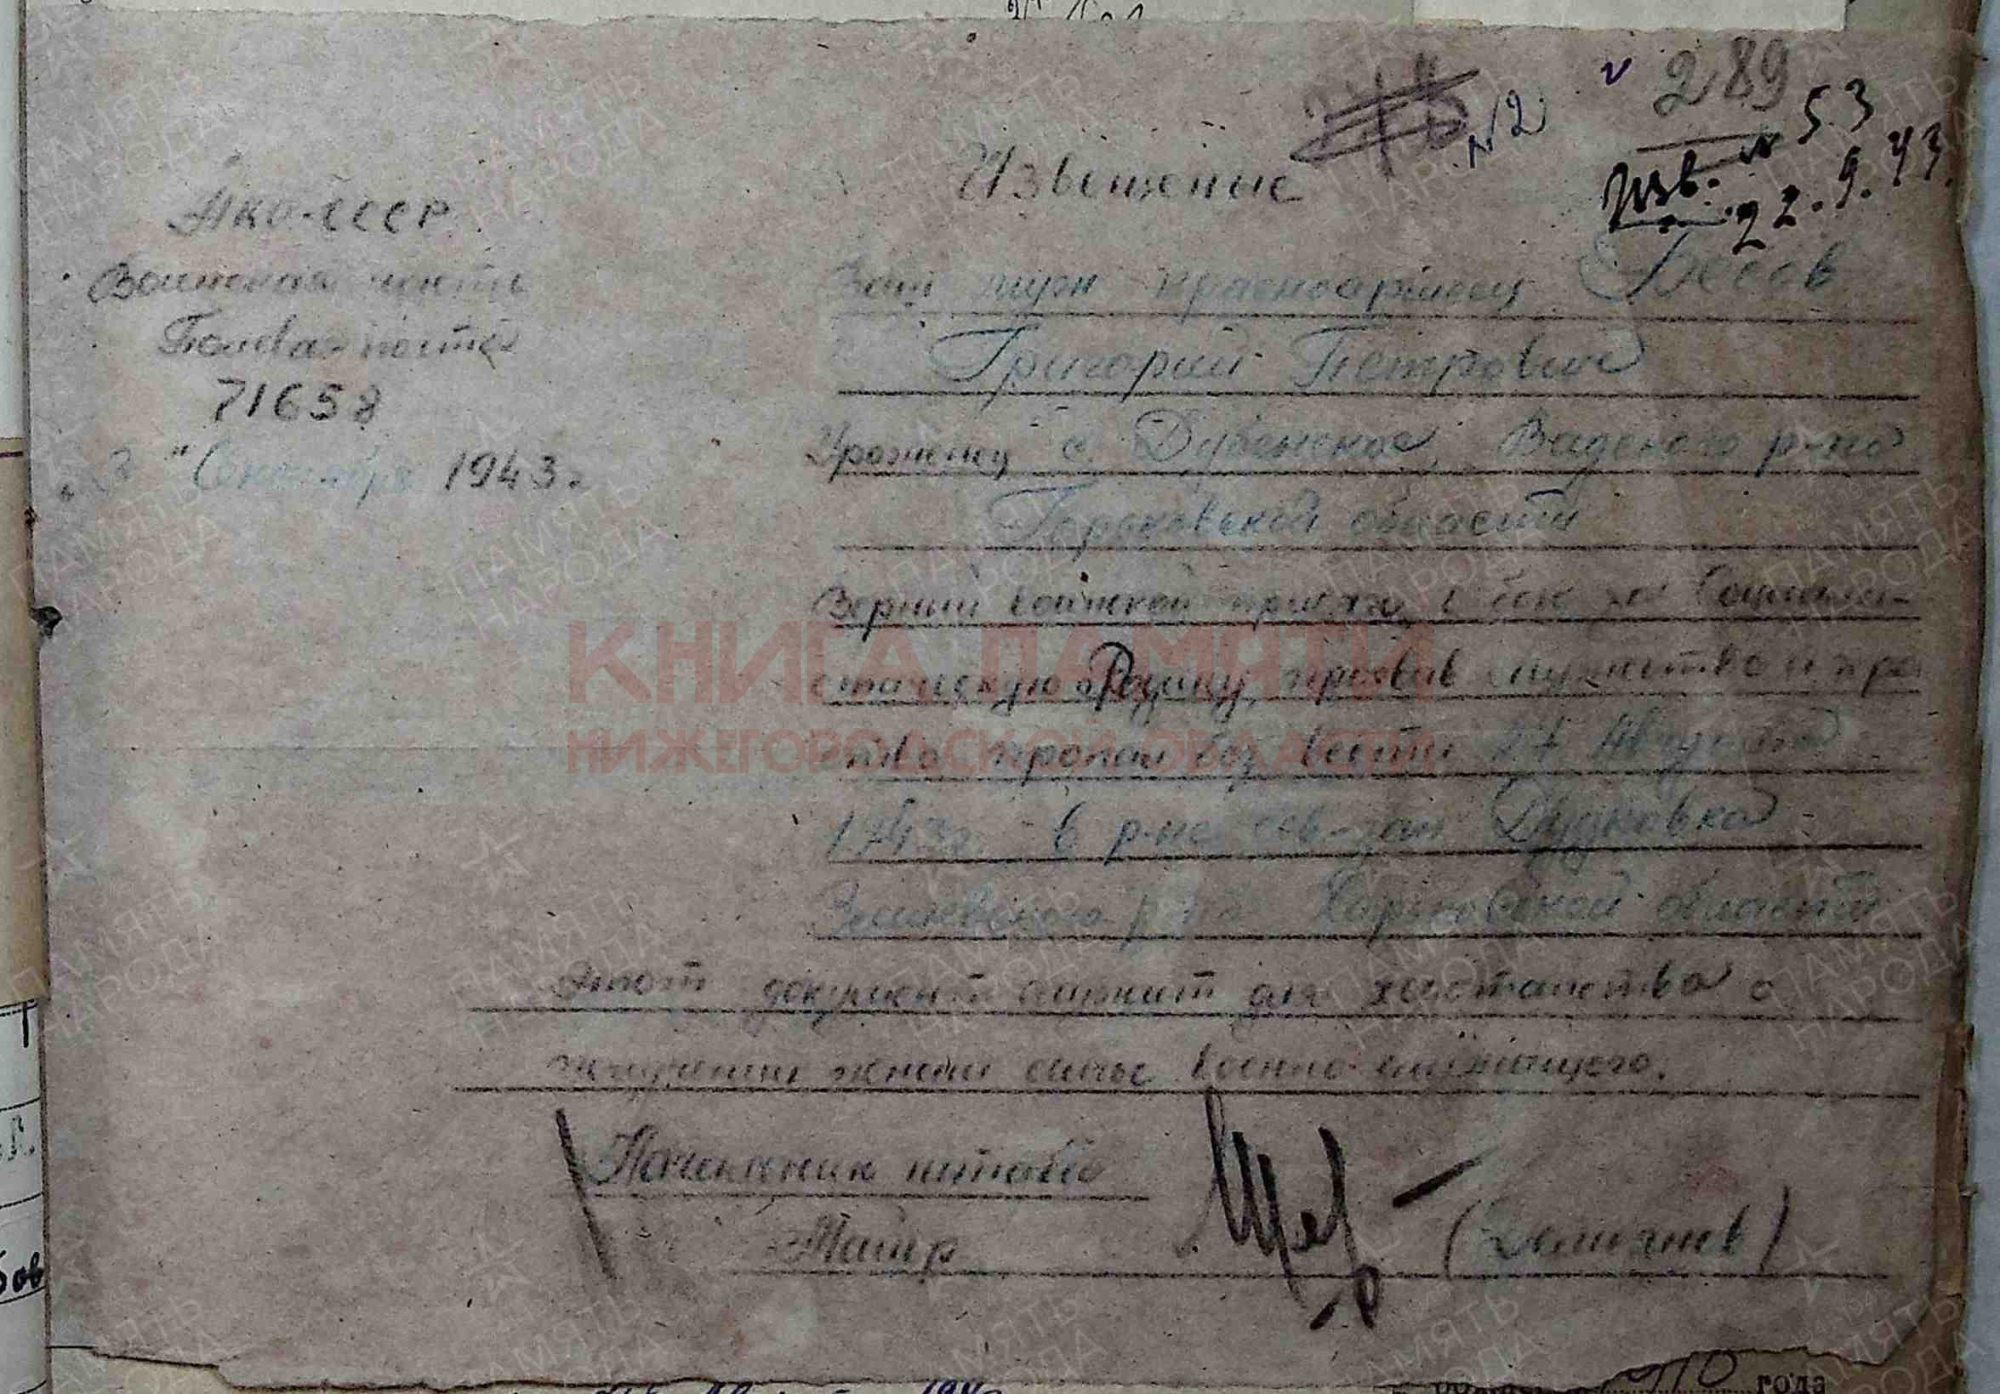 289
№2
Изв. № 53
22.9.43.
Извещение
НКО-СССР
Воинская часть
Полевая почта
71658
" Сентября 1943 г.
Ваш муж красноармеец Бесов
Григорий Петрович
Уроженец с. Дубенское, Вадского р-на
Горьковской области
Верный воинской присяге, в бою за Социалис-
тическую Родину, проявив мужество и
пропал без вести 27 Августа
1943г. в р-не сев-зап Дудковка
Змиевского р-на Харьковской области
Этот документ служит для ходотайства о
получении семье военно-служащего.
Начальник штаба
Майор
КНИГА ПАМЯТИ
НИЖЕГОРОДСКОЙ ОБЛАСТИ
ПАМЯТЬ
НАРОДА
года